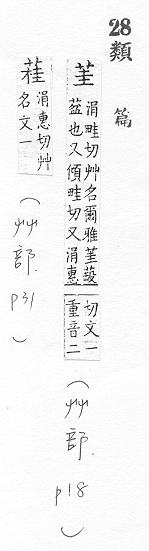 28 類篇
茥 涓畦切艸名爾雅茥蒛
葐也又傾畦切又涓惠
切文一
重音二
(艸部. p18)
蓕 涓惠切艸
名文一
(艸部. p31)